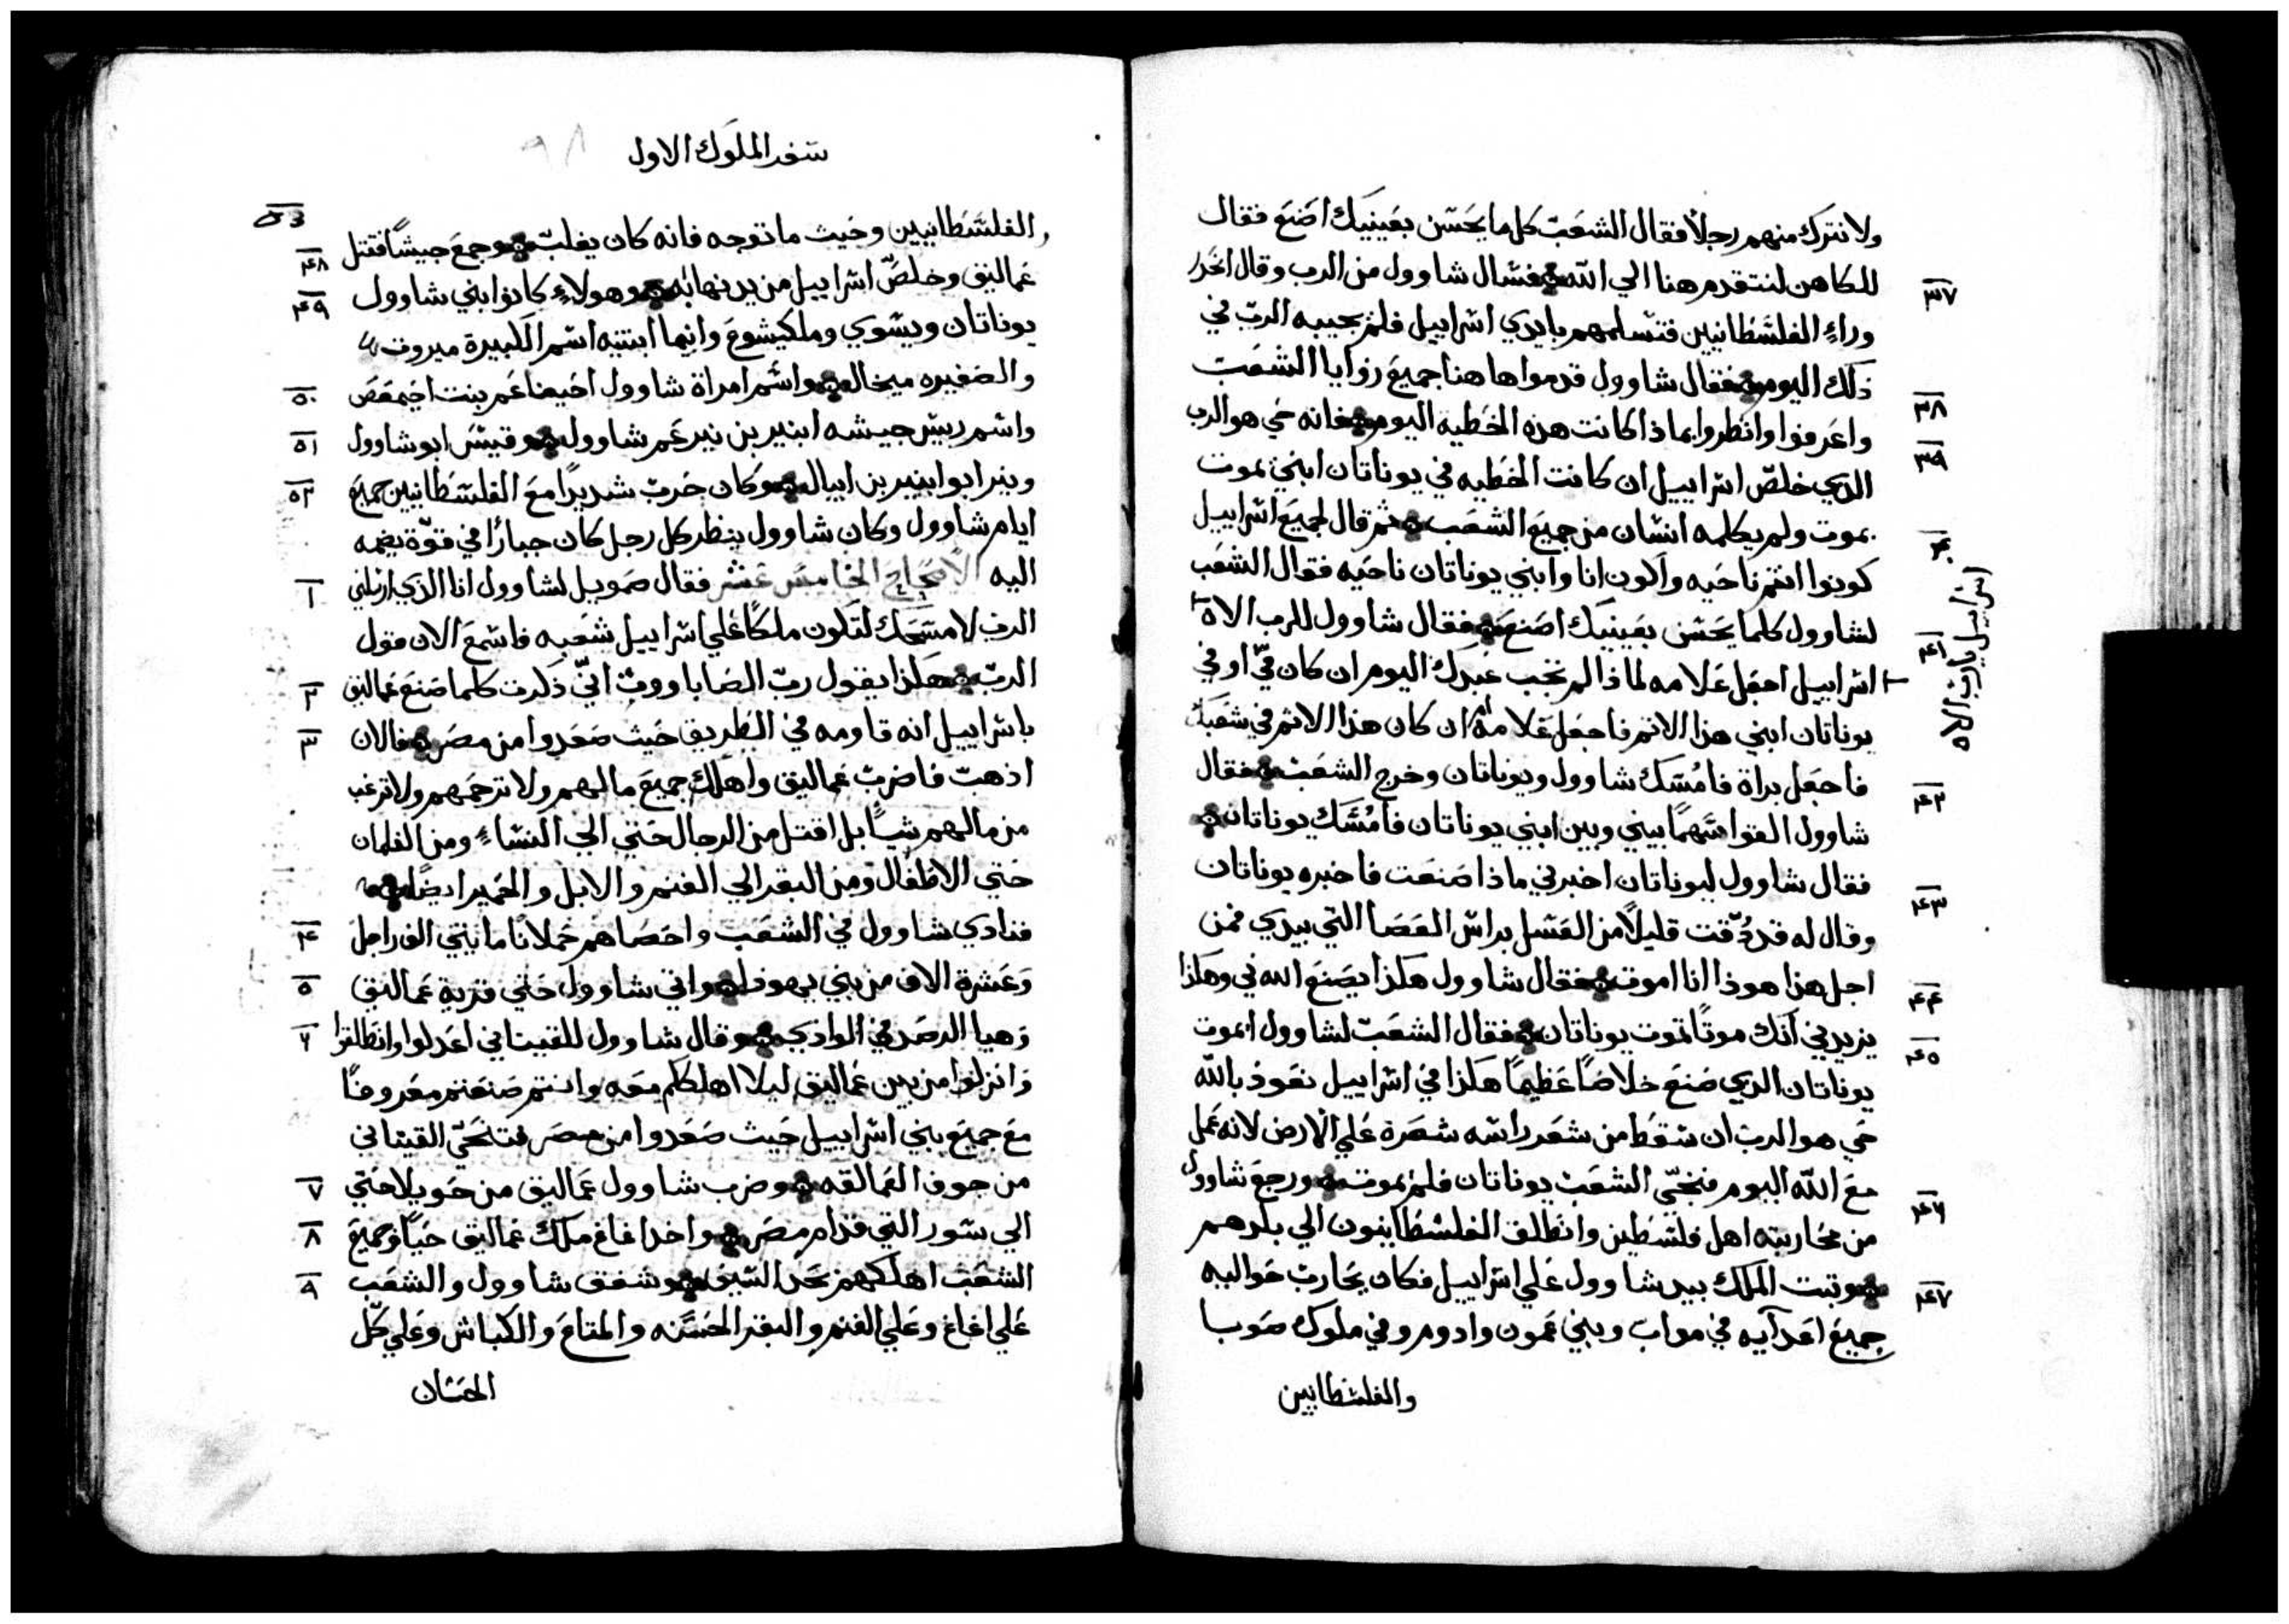 ولا نترك منهم رجلاً فقال الشعب كل ما يحسن بعينيك اصنع فقال
للكاهن لنتقدم هنا الي الله فسال شاوول من الرب وقال انحدر ٣٧
وراءِ الفلسطانيين فتسلمهم بايدي اسراييل فلم يجيبه الرب في
ذلك اليوم فقال شاوول قدموا هاهنا جميع زوايا الشعب ٣٨
واعرفوا وانظروا بماذا كانت هذه الخطيه اليوم فانه حي هو الرب ٣٩
الذي خلص اسراييل ان كانت الخطيه في يوناتان ابني يموت
يموت ولم يكلمه انسان من جميع الشعب ثم قال لجميع اسراييل ٤٠
كونوا انتم ناحيه واكون انا وابني يوناتان ناحيه فقال الشعب
لشاوول كلما يحسن بعينيك اصنع فقال شاوول للرب الاه ٤١
اسراييل يارب الاه
اسراييل اجعل علامه لماذا لم تجب عبدك اليوم ان كان فيّ او في
يوناتان ابني هذا الاثم فاجعل علامه ان كان هذا الاثم في شعبك
فاجعل براة فامسك شاوول ويوناتان وخرج الشعب فقال ٤٢
شاوول القوا سهماً بيني وبين ابني يوناتان فامسك يوناتان
فقال شاوول ليوناتان اخبرني ماذا صنعت فاخبره يوناتان ٤٣
وقال له قد ذقت قليلاً من العسل براس العصا التي بيدي فمن
اجل هذا هوذا انا اموت فقال شاوول هكذا يصنع الله في وهكذا ٤٤
يزيدني انك موتاً تموت يوناتان فقال الشعب لشاوول ايموت ٤٥
يوناتان الذي صنع خلاصاً عظيماً هكذا في اسراييل نعوذ بالله
حي هو الرب ان سقط من شعر راسه شعرة علي الارض لانه عمل
مع الله اليوم فنجّي الشعب يوناتان فلم يموت ورجع شاوول ٤٦
من محاربته اهل فلسطين وانطلق الفلسطانيون الي بلدهم
وثبت الملك بيد شاوول علي اسراييل فكان يحارب حواليه ٤٧
جميع اعدآيه في مواب وبني عمون وادوم وفي ملوك صوبا
والفلسطانيين
سفر الملوك الاول ٩٨
والفلسطانيين وحيث ما توجه فانه كان يغلب وجمع جيشاً فقتل ٤٨
عماليق وخلص اسراييل من يد نهابه وهولاءِ كانوا بني شاوول ٤٩
يوناتان ويسوي وملكيشوع وانما ابنتيه اسم الكبيرة ميروب
والصغيره ميخال واسم امراة شاوول احينعم بنت اخيمعص ٥٠
واسم رييس جيشه ابنير بن نير عم شاوول وقيس ابو شاوول ٥١
ونير ابو ابنير بن ابيال وكان حرب شديداً مع الفلسطانيين جميع ٥٢
ايام شاوول وكان شاوول ينظر كل رجل كان جباراً في قوّة يضمه
اليه الاصحاح الخامس عشر فقال صمويل لشاوول انا الذي ارسلني ١
الرب لامسحك لتكون ملكاً علي اسراييل شعبه فاسمع الان قول
الرب هكذا يقول رب الصاباووت انّي ذكرت كلما صنع عماليق ٢
باسراييل انه قاومه في الطريق حيث صعدوا من مصر فالان ٣
اذهب فاضرب عماليق واهلك جميع مالهم ولا ترحمهم ولا ترغب
من مالهم شياً بل اقتل من الرجال حتي الي النساءِ ومن الغلمان
حتي الاطفال ومن البقر الي الغنم والابل والحمير ايضاً
فنادي شاوول في الشعب واحصاهم حملانا مايتي الف راجل ٤
وعشرة الاف من بني يهوذا واتي شاوول حتي قرية عماليق ٥
وهيا الرصد في الوادي وقال شاوول للقيناني اعدلوا وانطلقوا ٦
وانزلوا من بين عماليق ليلا اهلككم معه وانتم صنعتم معروفاً
مع جميع بني اسراييل حيث صعدوا من مصر فتنحّي القيناني
من جوف العمالقه وضرب شاوول عماليق من حويلا حتي ٧
الي سور التي قدام مصر واخذ اغاغ ملك عماليق حياً وجميع ٨
الشعب اهلكهم بحد السيف وشفق شاوول والشعب ٩
علي اغاغ وعلي الغنم والبقر الحسنه والمتاع والكباش وعلي كلّ
الحسان